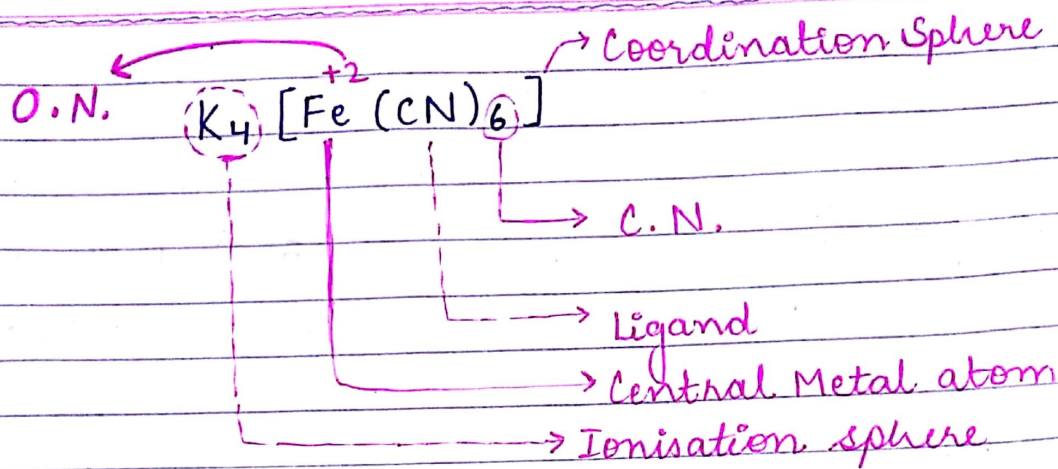 Coordination Sphere
+2
O.N. K4 [Fe (CN)6]
C.N.
Ligand
Central Metal atom
Ionisation sphere